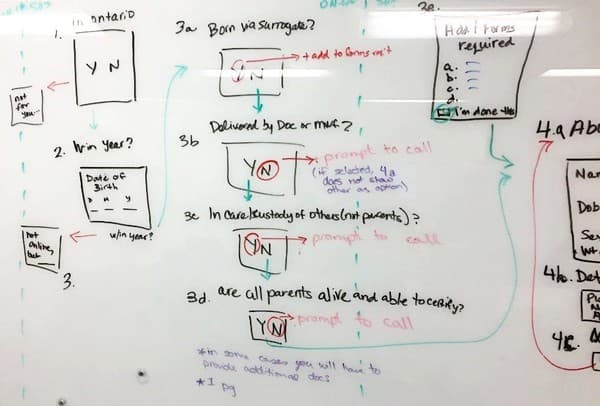 1. in ontario
Y N
not
for
you...
2. w/in year?
Date of
Birth
D M Y
not
online,
but
w/in year?
3.
3a Born via surrogate?
Y N
+ add to forms req't
3b Delivered by Doc or midw.?
Y N
prompt to call
(if selected, 4a
does not show
other as option)
3c In care/custody of others (not parents)?
Y N
prompt to call
3d. are all parents alive and able to certify?
Y N
prompt to call
* in some cases you will have to
provide additional docs
* 1 pg
3e.
Add'l forms
required
a.
b.
c.
d.
I'm done this
4.a Abo
Nam
Dob
Sex
4b. Det
4c.